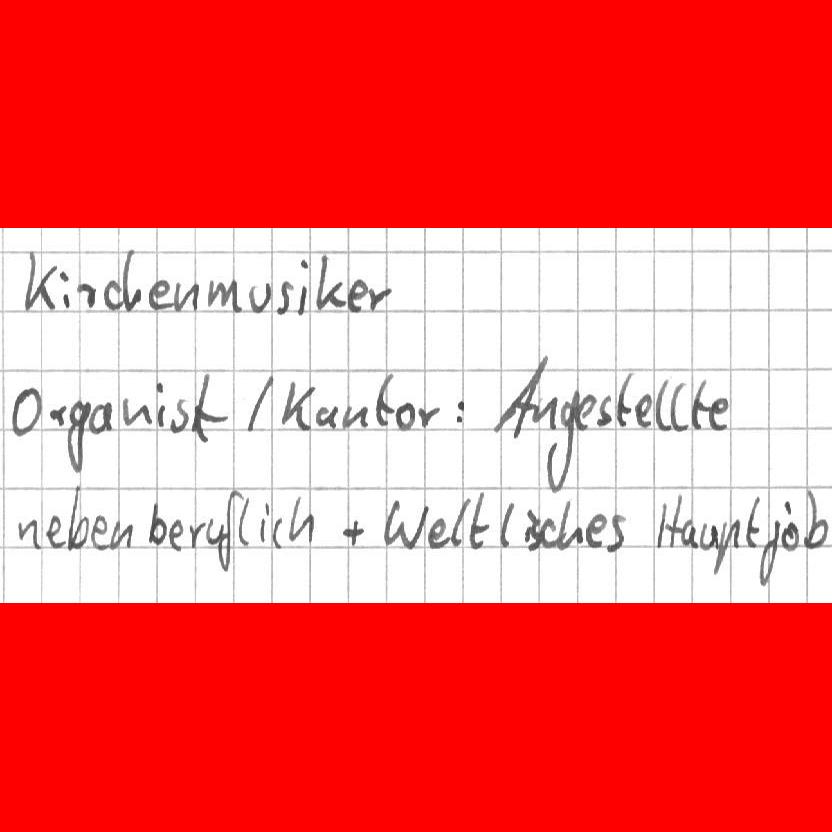 Kirchenmusiker
Organist / Kantor: Angestellte
nebenberuflich + Weltliches Hauptjob